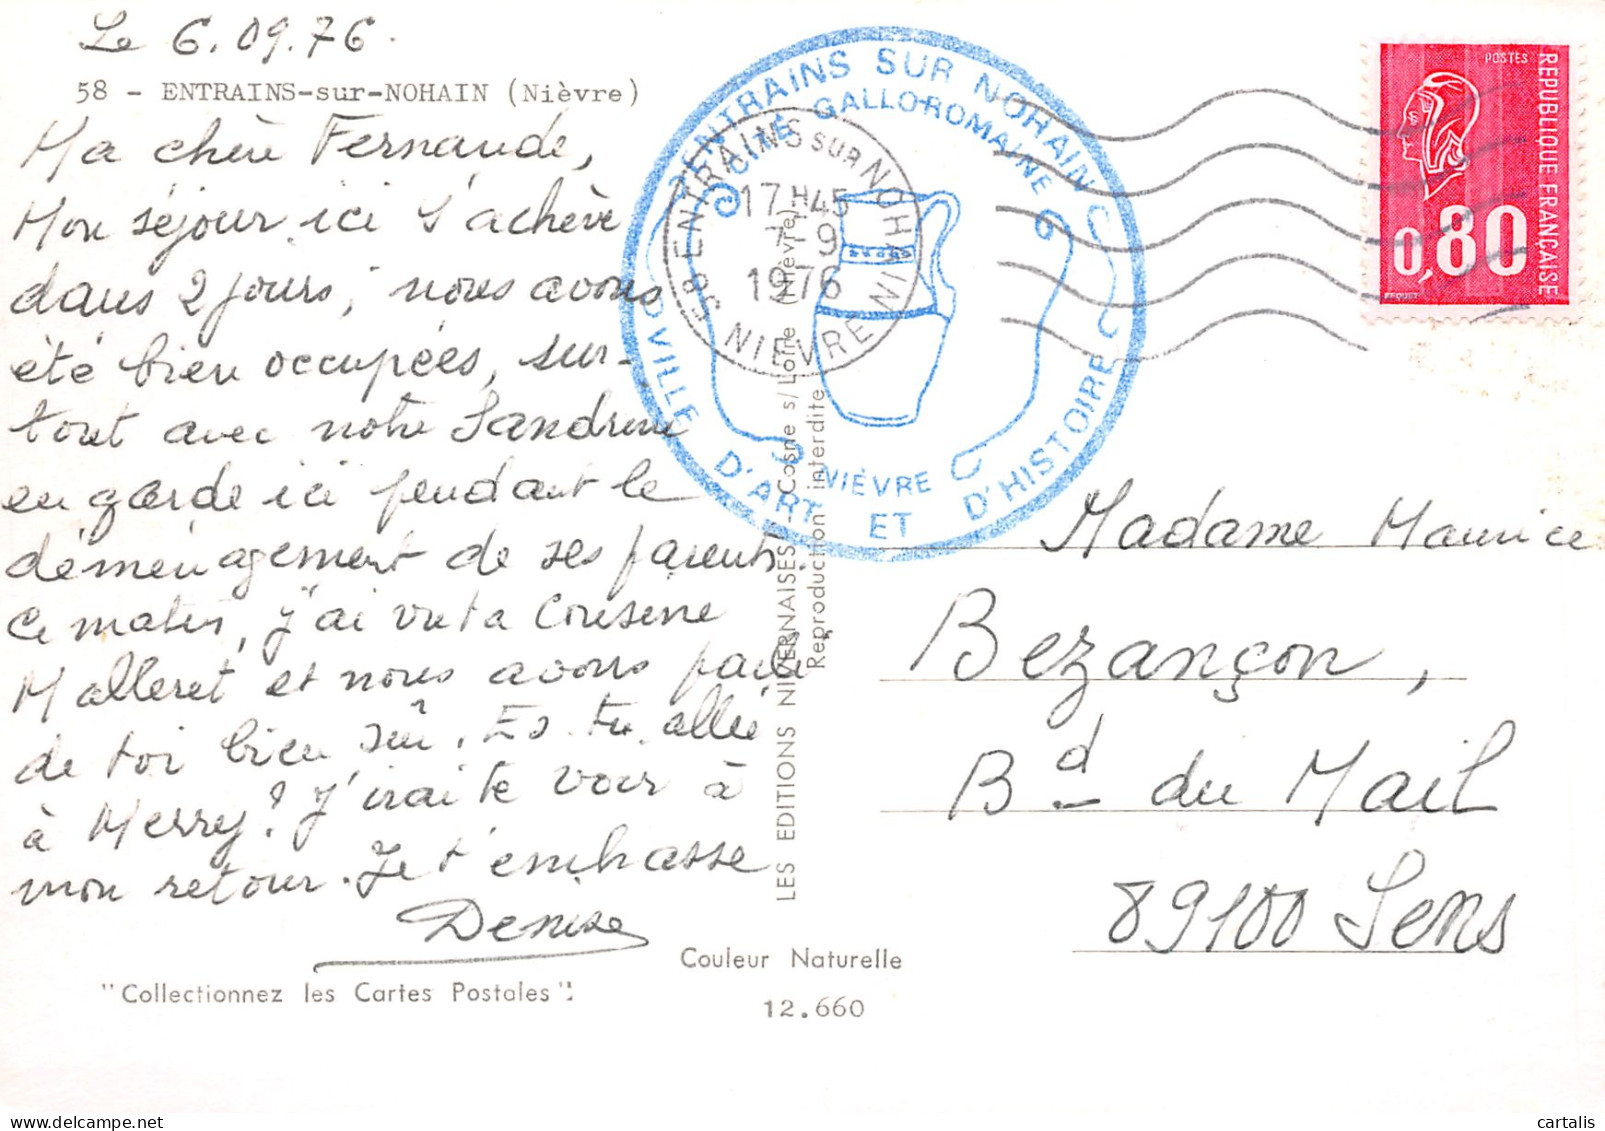 Le 6.09.76.
58 - ENTRAINS-sur-NOHAIN (Nièvre)
Ma chère Fernande,
Mon séjour ici s'achève
dans 2 jours, nous avons
été bien occupées, sur-
tout avec notre Sandrine
en garde ici pendant le
déménagement de ses parents.
Ce matin, j'ai vu ta Cousine
Malleret et nous avons parlé
de toi bien sûr. Es-tu allée
à Merry? J'irai te voir à
mon retour. Je t'embrasse
Denise
"Collectionnez les Cartes Postales":
ENTRAINS SUR NOHAIN
CITÉ GALLO-ROMAINE
NIÈVRE
VILLE D'ART ET D'HISTOIRE
58 ENTRAINS SUR NOHAIN
17 H 45
7-9
1976
NIEVRE
LES EDITIONS NIVERNAISES - Cosne s/Loire (Nièvre)
Reproduction interdite
Couleur Naturelle
12.660
POSTES
REPUBLIQUE FRANÇAISE
0,80
BEQUET
Madame Maurice
Bezançon,
Bd du Mail
89100 Sens
cartalis